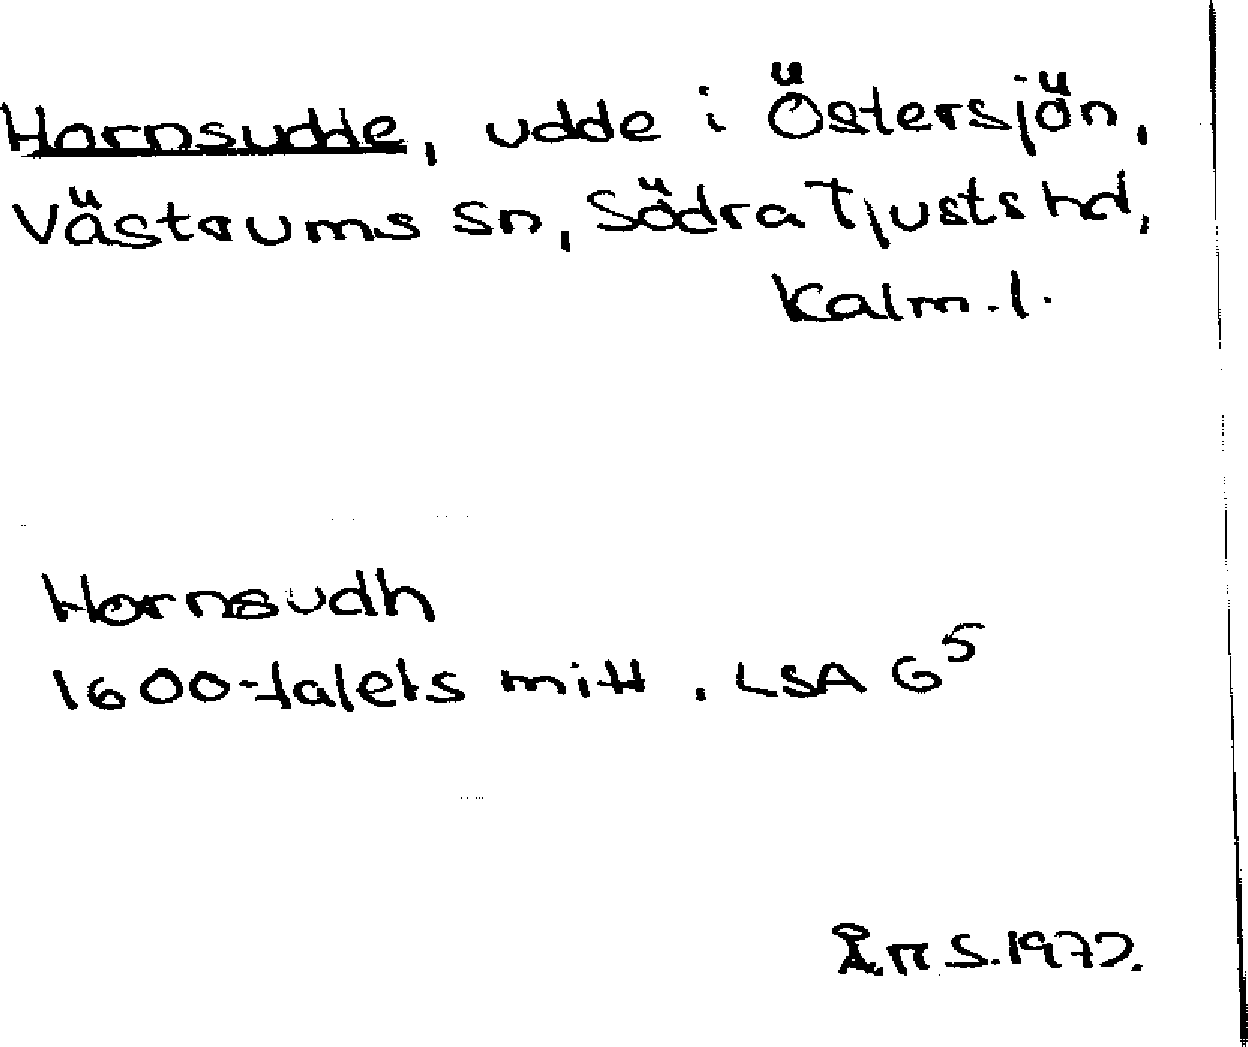 Hornsudde, udde i Östersjön,
Västrums sn, Södra Tjusts hd,
Kalm. l.
Hornsudh
1600-talets mitt. LSA G5
Å.M.S. 1972.